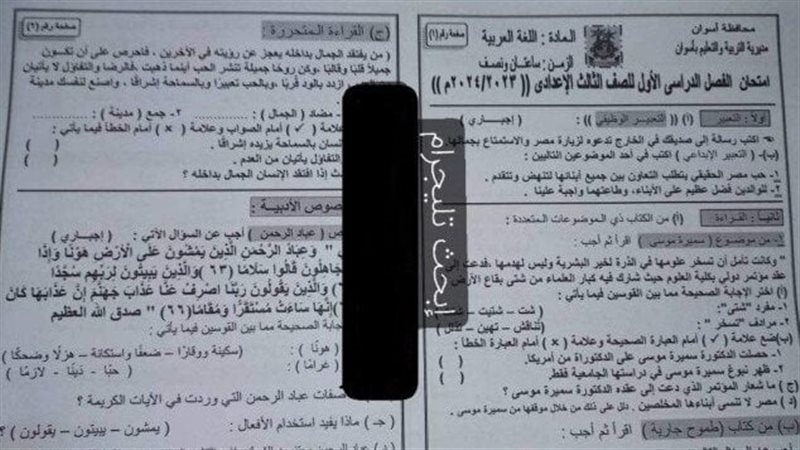 محافظة أسوان
مديرية التربية والتعليم بأسوان
المادة : اللغة العربية
الزمن : ساعتان ونصف
صفحة رقم (١)
امتحان الفصل الدراسى الأول للصف الثالث الإعدادى (( ٢٠٢٤/٢٠٢٣م ))
أولا: التعبير أ) (( التعبير الوظيفي )) : ( إجباري )
اكتب رسالة إلى صديقك في الخارج تدعوه لزيارة مصر والاستمتاع بجمالها
(ب)- ( التعبير الإبداعي ) اكتب في أحد الموضوعين التاليين :
١- حب مصر الحقيقي يتطلب التعاون بين جميع أبنائها لتنهض وتتقدم .
٢- للوالدين فضل عظيم على الأبناء، وطاعتهما واجبة علينا .
ثانيا : القراءة (أ) من الكتاب ذي الموضوعات المتعددة :
١- من موضوع ( سميرة موسى ) اقرأ ثم أجب :
" وكانت تأمل أن تسخر علومها في الذرة لخير البشرية وليس لهدمها ،فدعت إلى
عقد مؤتمر دولي بكلية العلوم حيث شارك فيه كبار العلماء من شتى بقاع الأرض
(أ) اختر الإجابة الصحيحة مما بين القوسين فيما يأتي :
١- مفرد "شتى" : ( شت – شتيت –
٢- مرادف "تسخر" : (تناقش – تهين – تذلل )
(ب)ضع علامة ( ✓ ) أمام العبارة الصحيحة وعلامة ( × ) أمام العبارة الخطأ :
١- حصلت الدكتورة سميرة موسى على الدكتوراة من أمريكا. ( )
٢- ظهر نبوغ سميرة موسى في دراستها الجامعية فقط ( )
(ج) ما شعار المؤتمر الذي دعت إلى عقده الدكتورة سميرة موسى ؟
(د) مصر لا تنسى أبناءها المخلصين . دلل على ذلك من خلال موقفها من سميرة موسى.
(ب) من كتاب (طموح جارية ) اقرأ ثم أجب :
إبحث تليجرام
صفحة رقم (٢)
(ج) القراءة المتحررة :
( من يفتقد الجمال بداخله يعجز عن رؤيته في الآخرين ، فاحرص على أن تكون
جميلاً قلبًا وقالبًا، وكن روحًا جميلة تنشر الحب أينما ذهبت ،فالرضا والتفاؤل لا يأتيان
ازدد بالود قربًا ،وبالحب تعبيرًا وبالسماحة إشراقًا . واصنع لنفسك مدينة
مضاد ( الجمال ) : ٢- جمع ( مدينة ) :
علامة ( ✓ ) أمام الصواب وعلامة ( × ) أمام الخطأ فيما يأتي :
بالسماحة يزيده إشراقًا . ( )
التفاؤل يأتيان من العدم . ( )
إذا افتقد الإنسان الجمال بداخله ؟
النصوص الأدبية :
( عباد الرحمن ) أجب عن السؤال الآتي : ( إجباري )
" وَعِبَادُ الرَّحْمَنِ الَّذِينَ يَمْشُونَ عَلَى الْأَرْضِ هَوْنًا وَإِذَا
الْجَاهِلُونَ قَالُوا سَلَامًا (٦٣) وَالَّذِينَ يَبِيتُونَ لِرَبِّهِمْ سُجَّدًا
وَالَّذِينَ يَقُولُونَ رَبَّنَا اصْرِفْ عَنَّا عَذَابَ جَهَنَّمَ إِنَّ عَذَابَهَا كَانَ
إِنَّهَا سَاءَتْ مُسْتَقَرًّا وَمُقَامًا(٦٦) " صدق الله العظيم
الإجابة الصحيحة مما بين القوسين فيما يأتي :
( هونًا ) : ( سكينة ووقارًا – ضعفًا واستكانة – هزلًا وضحكًا )
( غرامًا ) : ( حبًا – دينًا – لازمًا )
صفات عباد الرحمن التي وردت في الآيات الكريمة ؟
جـ ) ماذا يفيد استخدام الأفعال : ( يمشون – يبيتون – يقولون ) ؟